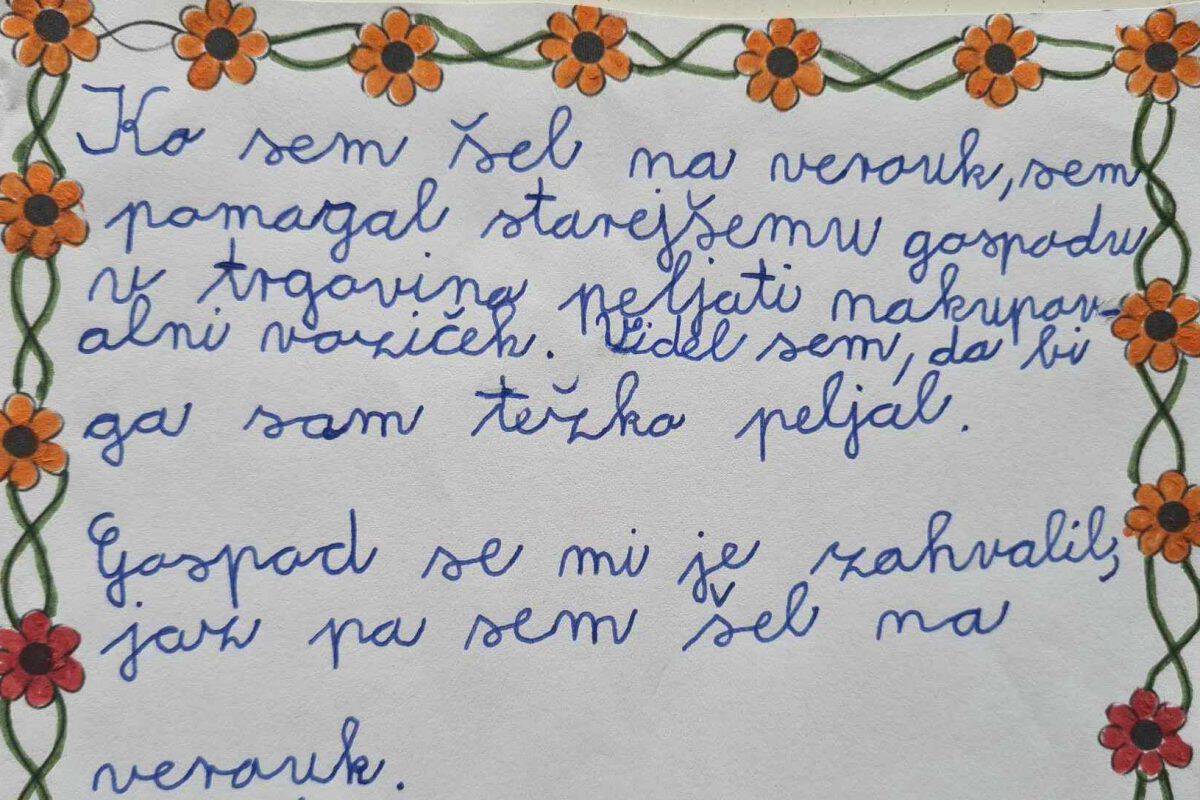 Ko sem šel na verouk, sem
pomagal starejšemu gospodu
v trgovina peljati nakupov-
alni voziček. Videl sem, da bi
ga sam težko peljal.
Gospod se mi je zahvalil,
jaz pa sem šel na
verouk.